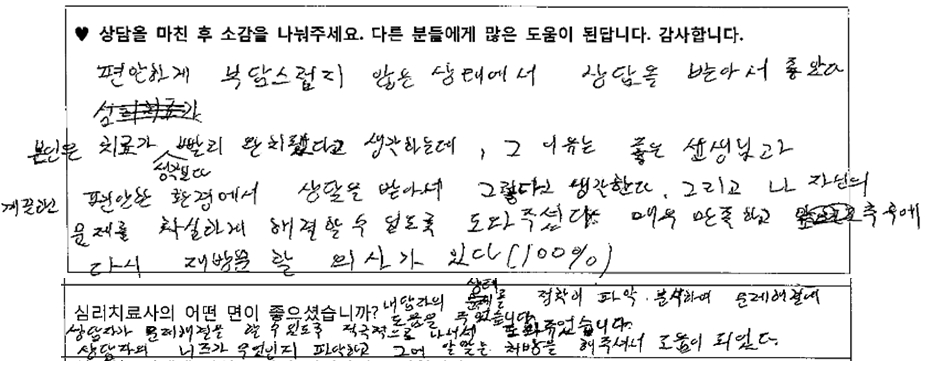 ♥ 상담을 마친 후 소감을 나눠주세요. 다른 분들에게 많은 도움이 된답니다. 감사합니다.
편안하게 부담스럽지 않은 상태에서 상담을 받아서 좋았다
심리치료가
본인은 치료가 생각보다 빨리 완치됐다고 생각하는데, 그 이유는 좋은 선생님과
개끗하고 편안한 환경에서 상담을 받아서 그렇다고 생각한다. 그리고 나 자신의
문제를 확실하게 해결할 수 있도록 도와주셨다. 매우 만족하고 추후에
다시 재방문 할 의사가 있다(100%)
심리치료사의 어떤 면이 좋으셨습니까? 내담자의 상태를 정확히 파악·분석하여 문제해결에
도움을 주었습니다.
상담자가 문제해결을 할 수 있도록 적극적으로 나서서 도와주었습니다.
상담자의 니즈가 무엇인지 파악하고 그에 알맞는 처방을 해주셔서 도움이 되었다.